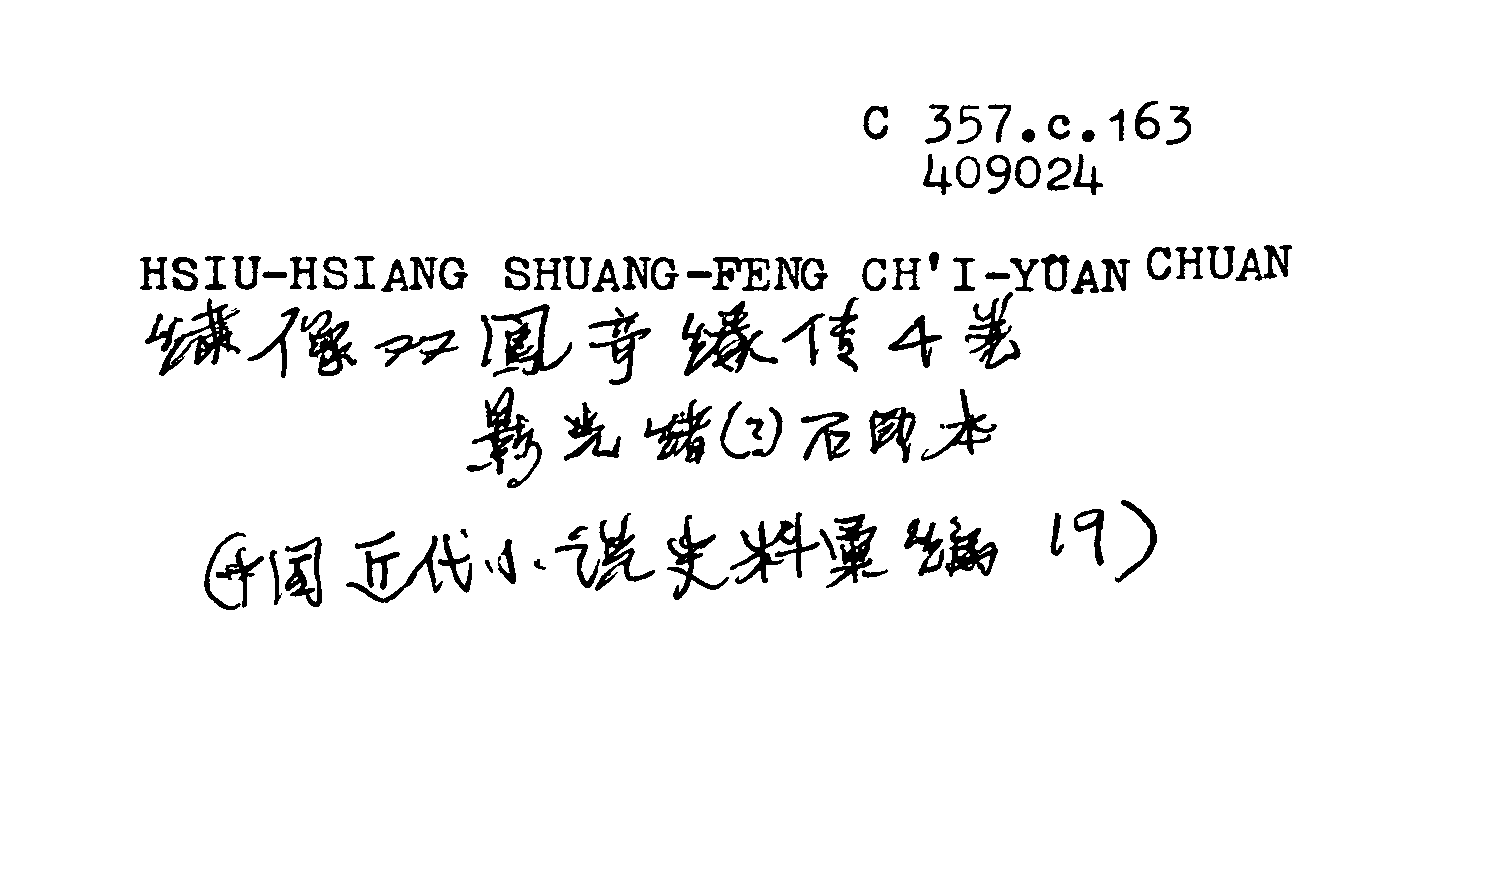 C 357.c.163
409024
HSIU-HSIANG SHUANG-FENG CH'I-YÜAN CHUAN
繡像双鳳奇緣传4卷
影光緒(?)石印本
(中国近代小说史料彙編 19)